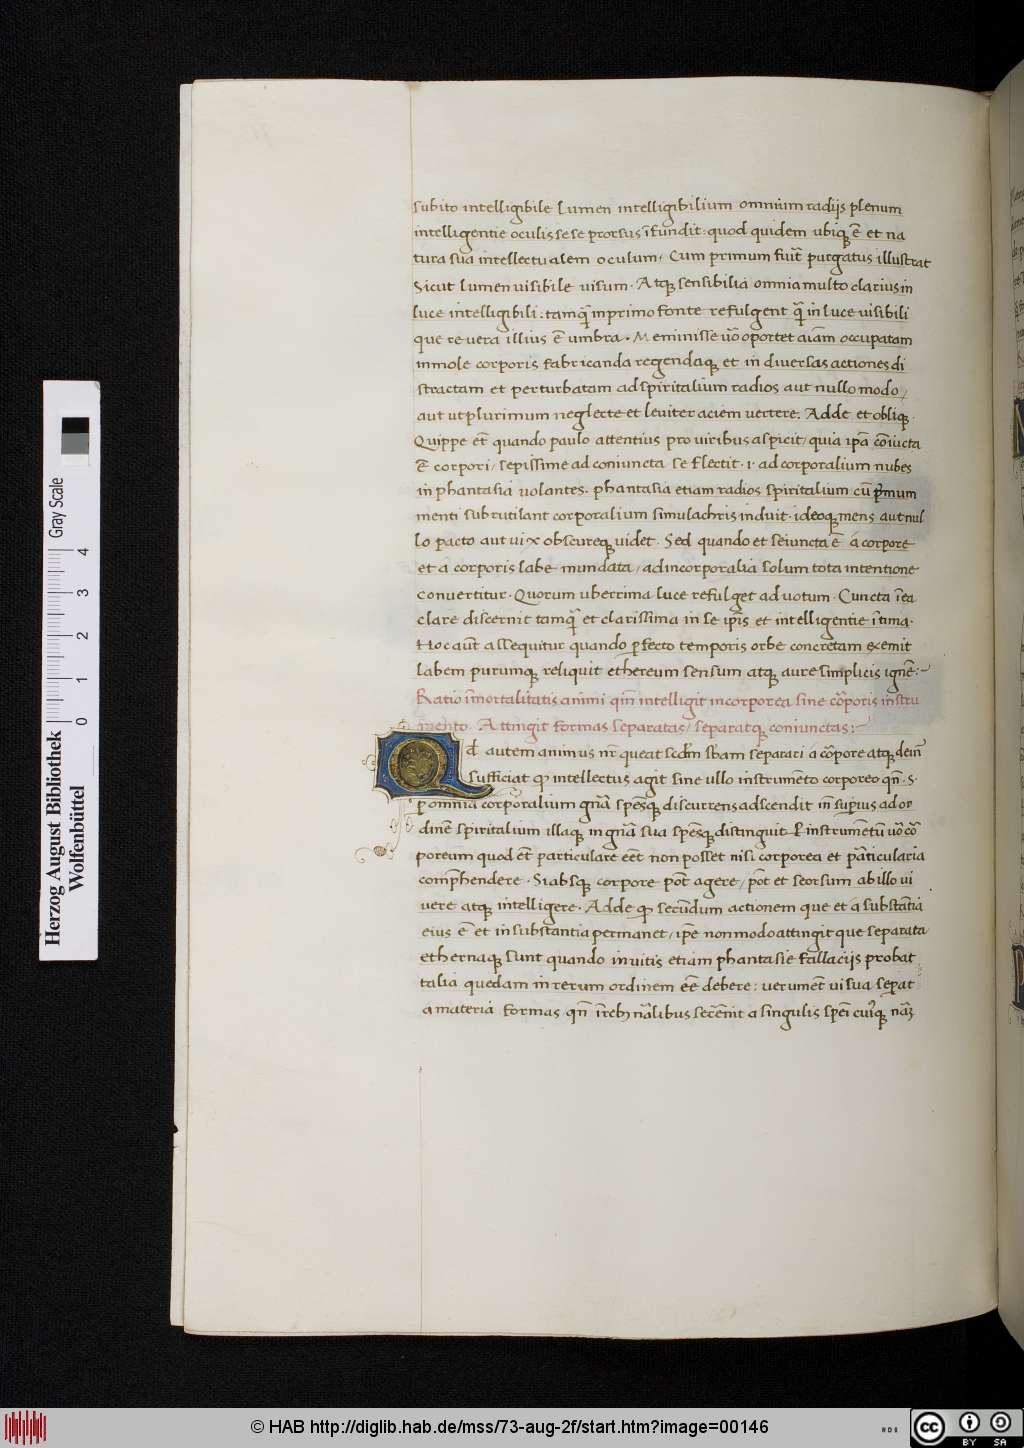 subito intelligibile lumen intelligibilium omnium radijs plenum
intelligentie oculis se se prorsus īfundit: quod quidem ubiqꝫ ē et na
tura sua intellectualem oculum, Cum primum fuīt purgatus illustrat
Sicut lumen uisibile uisum. Atqꝫ sensibilia omnia multo clarius in
luce intelligibili: tamqꝫ in primo fonte refulgent q̄ in luce uisibili
que re uera illius ē umbra. Meminisse uo oportet aīam occupatam
in mole corporis fabricanda regendaqꝫ et in diuersas actiones di
stractam et perturbatam ad spiritalium radios aut nullo modo,
aut ut plurimum neglecte et leuiter aciem uertere: Adde et obliqꝫ.
Quippe et̄ quando paulo attentius pro uiribus aspicit, quia ip̄a cōiucta
ē corpori, sepissime ad coniuncta se flectit. i. ad corporalium nubes
in phantasia uolantes. phantasia etiam radios spiritalium cū p̄mum
menti subrutilant corporalium simulachris induit. ideoqꝫ mens aut nul
lo pacto aut uix obscureqꝫ uidet. Sed quando et seiuncta ē a corpore
et a corporis labe mundata, ad incorporalia solum tota intentione
conuertitur. Quorum uberrima luce refulget ad uotum. Cuncta ī ea
clare discernit tamq̄ et clarissima in se ip̄is et intelligentie ītima.
Hoc aut̄ assequitur quando ꝑfecto temporis orbe concretam exemit
labem purumqꝫ reliquit ethereum sensum atqꝫ aure simplicis ignē:
Ratio īmortalitatis animi qm̄ intelligit incorporea sine cōporis instru
mento. Attingit formas separatas, separatqꝫ coniunctas:
Qd̄ autem animus nr̄ queat scdm̄ sbam separari a cōpore atqꝫ dein̄
sufficiat qꝫ intellectus agit sine ullo instrumēto corporeo qn̄. s.
ꝑ omnia corporalium gn̄a spēsqꝫ discurrens adscendit in sup̄ius ad or
dinē spiritalium illaqꝫ in gn̄a sua spēsqꝫ distinguit Per instrumētū uō cō
poreum quod et̄ particulare eēt non posset nisi corporea et p̄ticularia
comp̄hendere. Si absqꝫ corpore pōt agere, pōt et seorsum ab illo ui
uere atqꝫ intelligere. Adde qꝫ secūdum actionem que et a substātia
eius ē et in substantia permanet, ip̄e non modo attingit que separata
ethernaqꝫ sunt quando inuitis etiam phantasie fallacijs probat
talia quedam in rerum ordinem eē debere: uerum et̄ ui sua sep̄at
a materia formas qn̄ ī rebꝫ nālibus secernit a singulis spēi cuiꝰqꝫ nāꝫ
Herzog August Bibliothek
Wolfenbüttel
0 1 2 3 4
Gray Scale
© HAB http://diglib.hab.de/mss/73-aug-2f/start.htm?image=00146
cc
BY SA